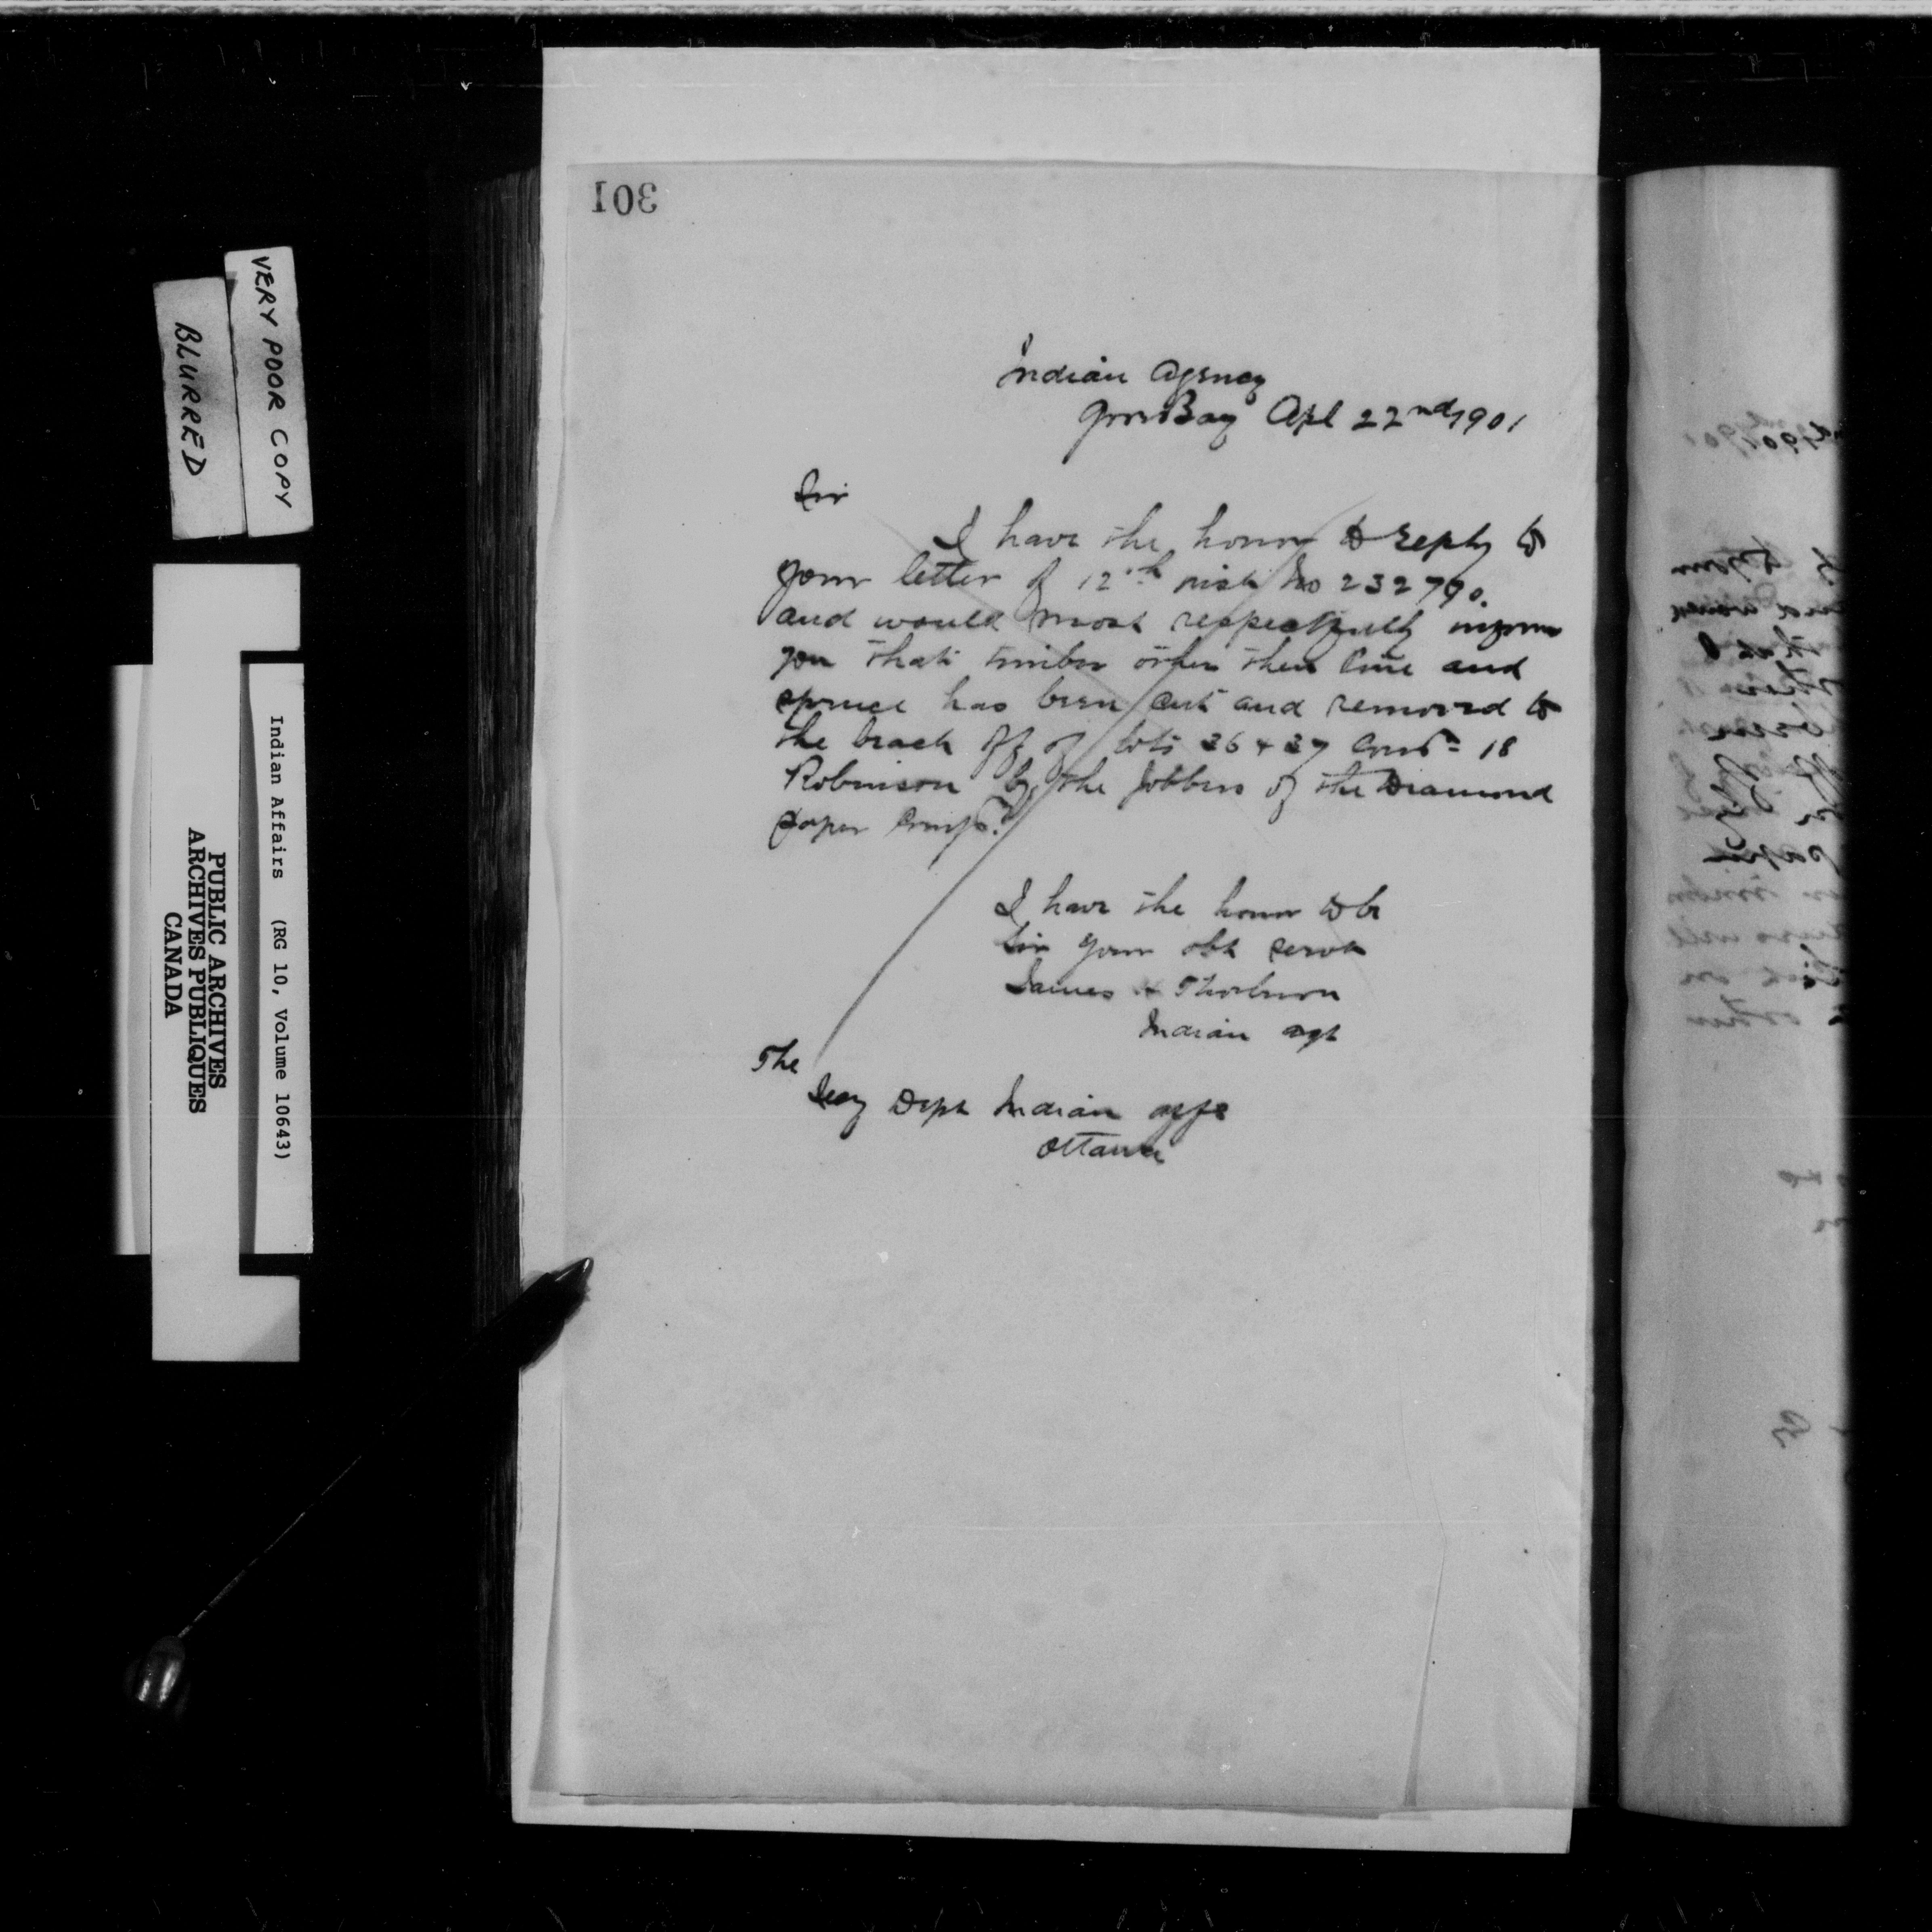 301
Indian Agency
Gore Bay Apl 22nd 1901
Sir
I have the honor to reply to
your letter of 12th inst No 232790.
and would most respectfully inform
you that timber other then Pine and
spruce has been cut and removed to
the beach off of lots 26 + 27 Con 18
Robinson by the Jobbers of the Diamond
paper Compy
I have the honor to be
Sir your obt servt
James H Thorburn
Indian agt
The
Secy Dept Indian affs
Ottawa
VERY POOR COPY
BLURRED
Indian Affairs (RG 10, Volume 10643)
PUBLIC ARCHIVES
ARCHIVES PUBLIQUES
CANADA